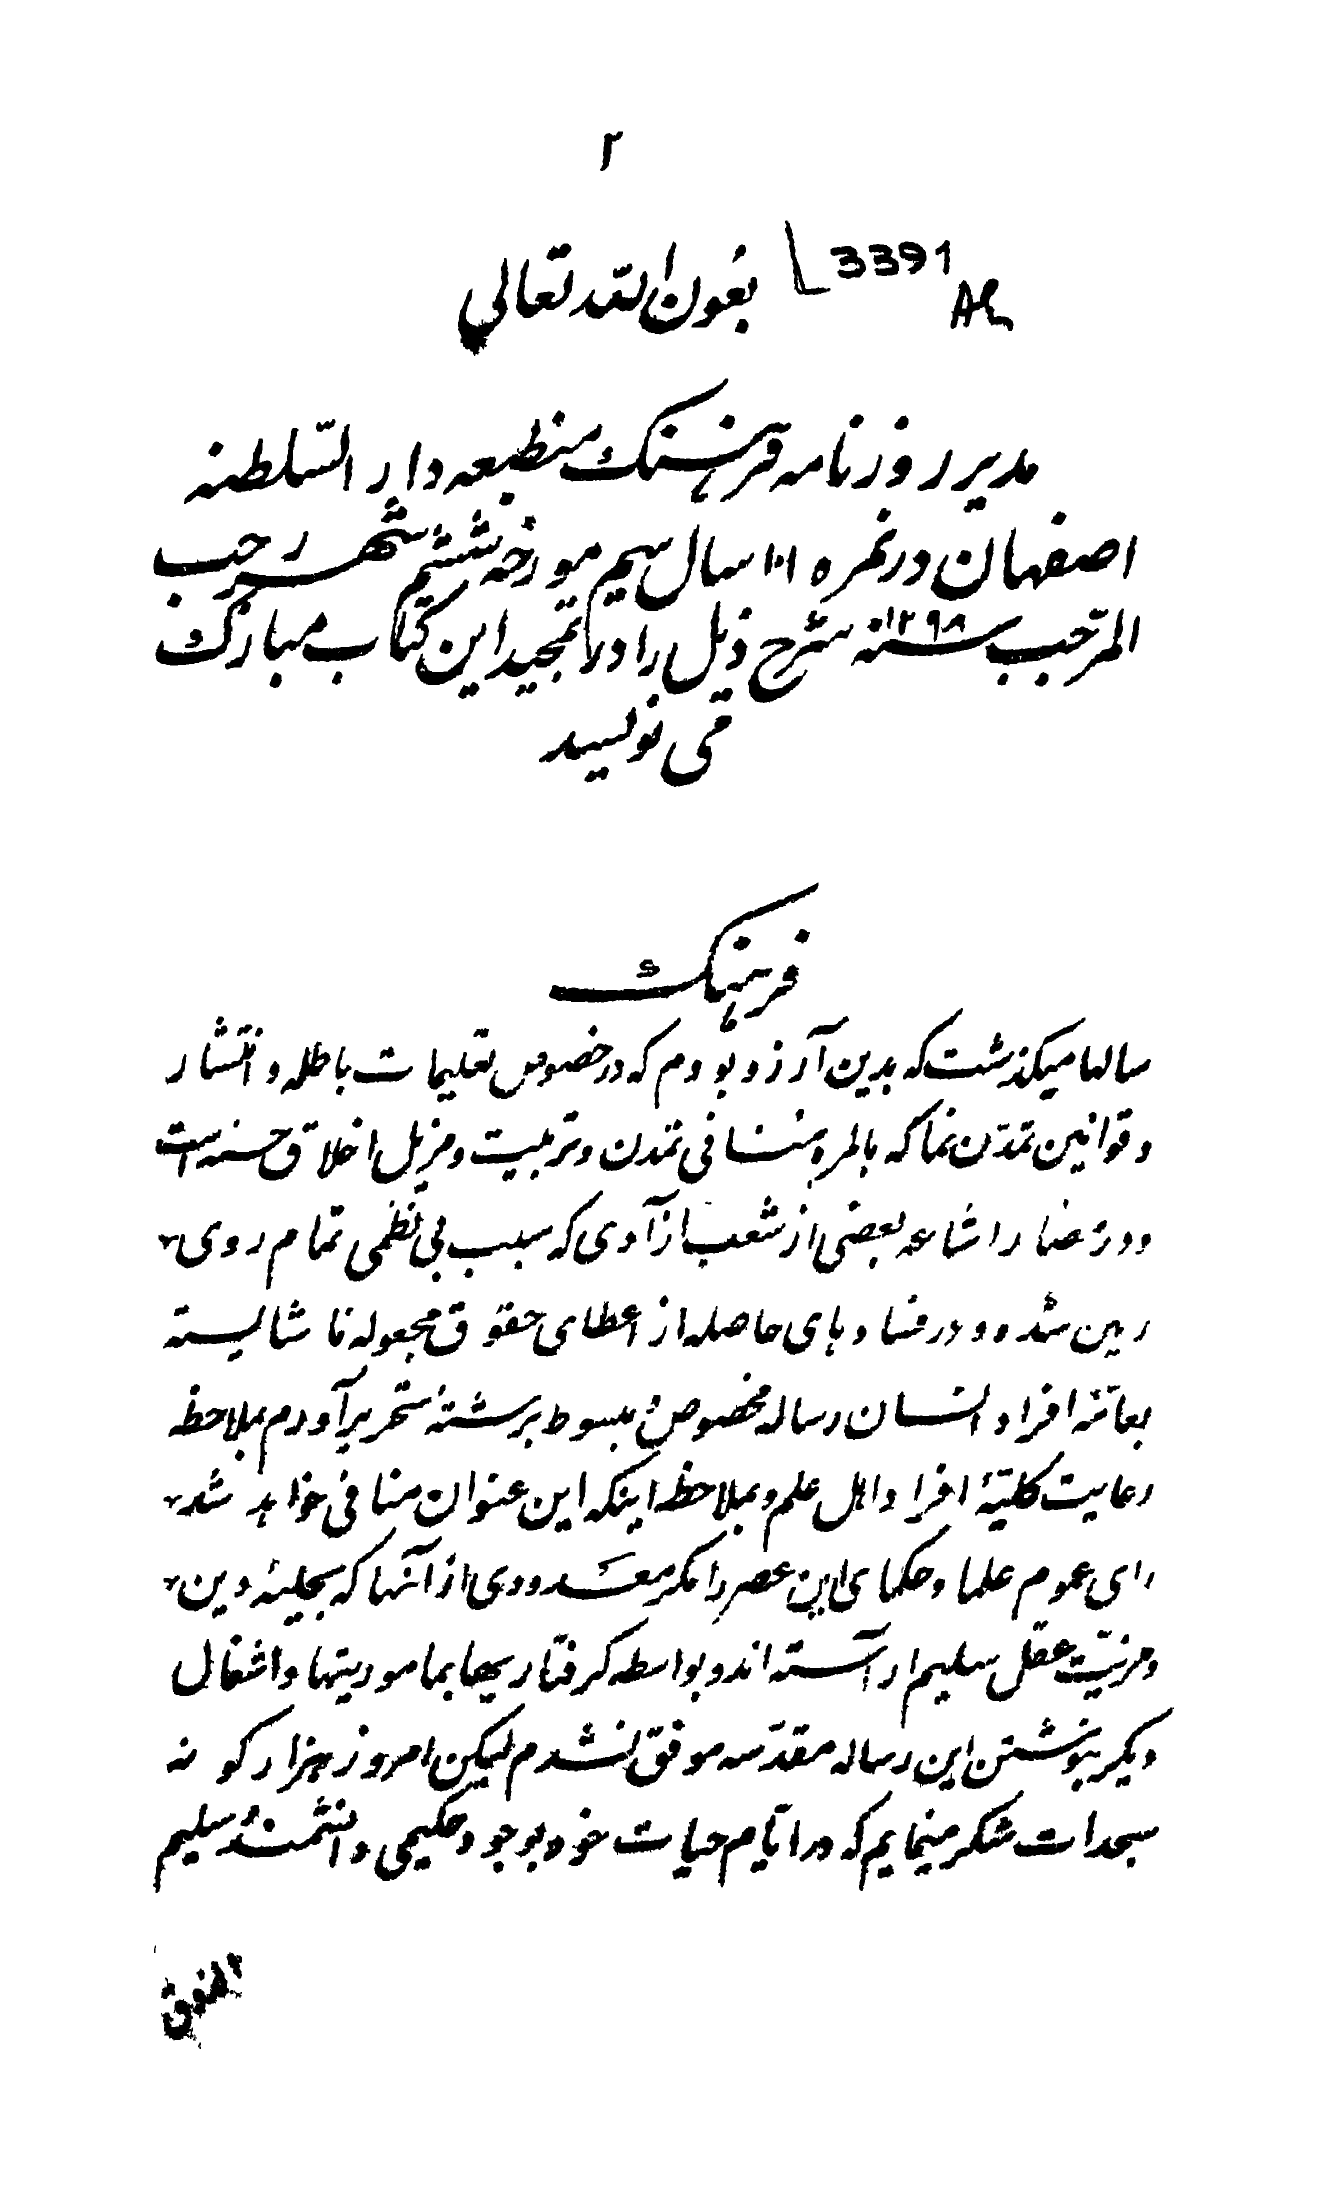 ۲
بعون الله تعالی
3391
مدیر روزنامه فرهنک منطبعه دار السّلطنه
اصفهان در نمره ۱۰۱ سال سیم مورخه ششم شهر رجب
المرجّب سنه ۱۲۹۸ شرح ذیل را در تمجید این کتاب مبارک
می نویسد
فرهنک
سالها میکذشت که بدین آرزو بودم که در خصوص تعلیمات باطله و انتشار
و قوانین تمدّن نما که بالمره منافی تمدن و تربیت و مزیل اخلاق حسنه است
و در مضار اشاعه بعضی از شعب ازآدی که سبب بی نظمی تمام روی
زمین شده و در فساد های حاصله از اعطای حقوق مجعوله ناشایسته
بعامّه افراد انسان رساله مخصوص و مبسوط برشتهٔ تحریر آورم بملاحظه
رعایت کلّیّهٔ افراد اهل علم و بملاحظه اینکه این عنوان منافی خواهد شد
رای عموم علما و حکمای این عصر را مکر معدودی از آنها که بحلیهٔ دین
و مزیّت عقل سلیم اراسته اند و بواسطه کرفتاریها بماموریتها و اشغال
دیکر بنوشتن این رساله مقدّسه موفق نشدم لیکن امروز هزار کونه
سجدات شکر مینمایم که در ایّام حیات خود بوجود حکیمی دانشمند و سلیم